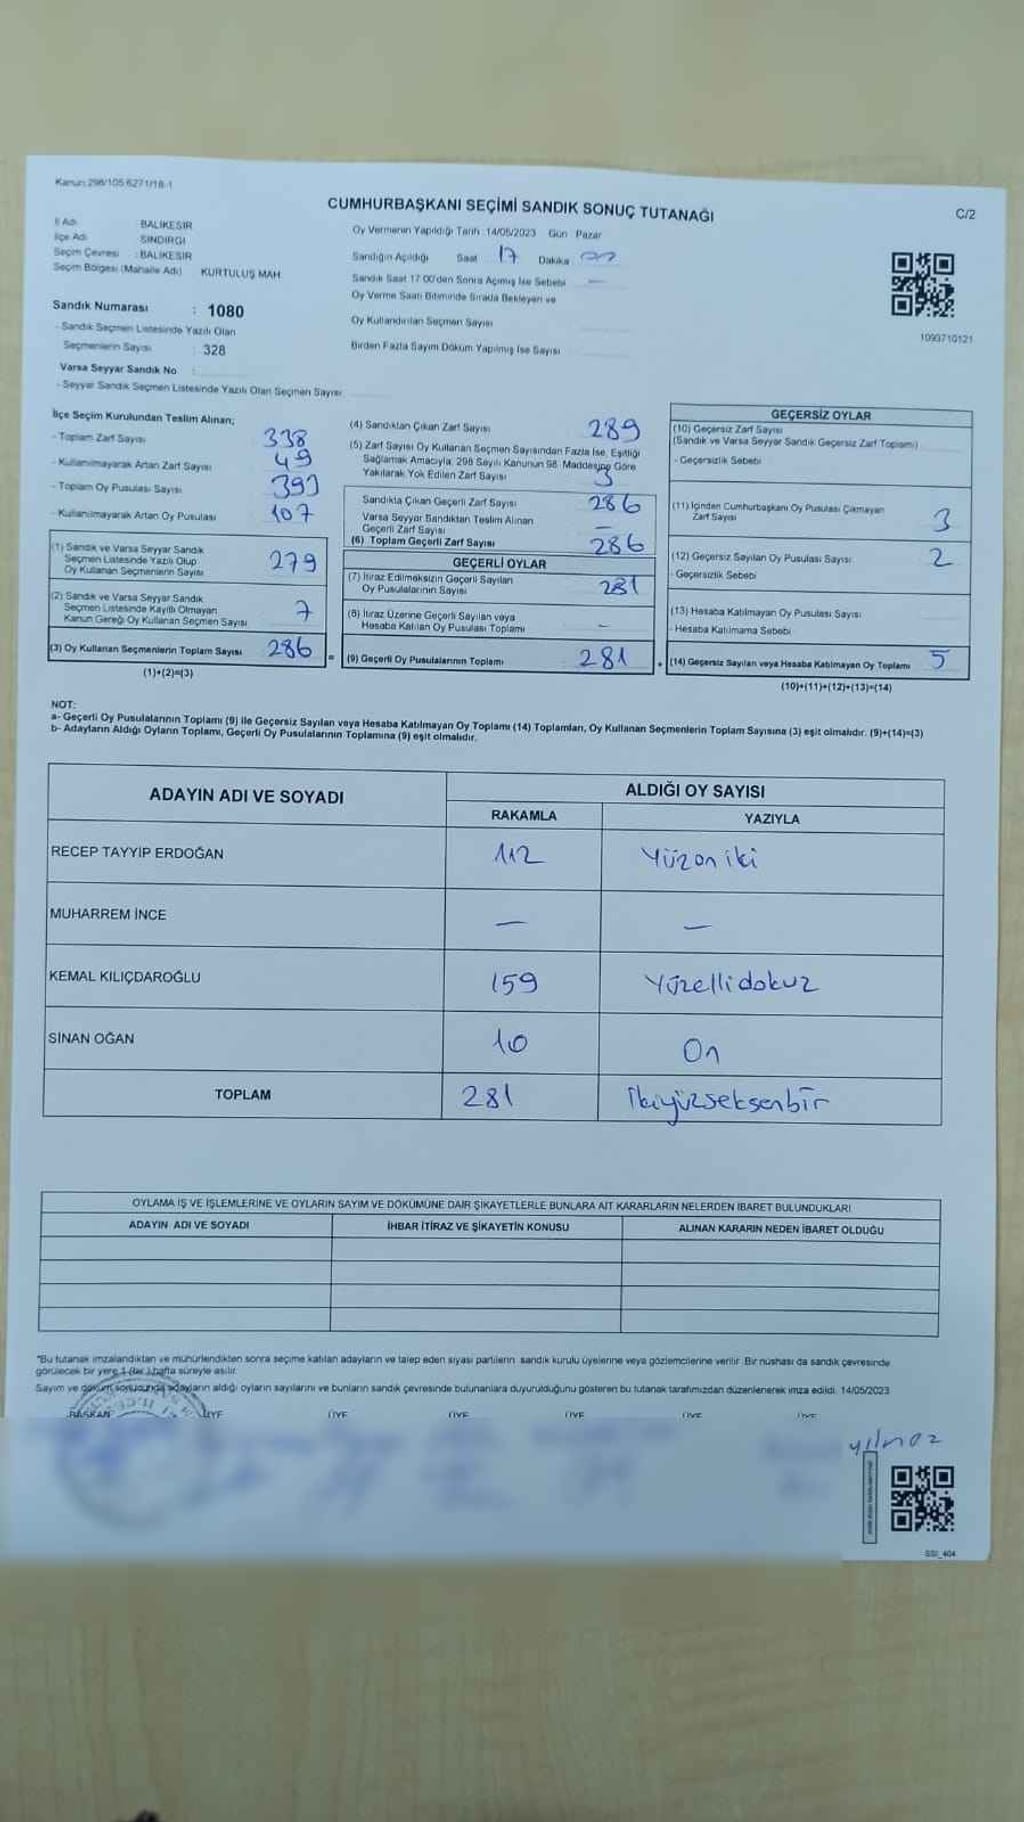 Kanun 298/105 6271/18-1
CUMHURBAŞKANI SEÇİMİ SANDIK SONUÇ TUTANAĞI
C/2
İl Adı BALIKESİR
İlçe Adı SINDIRGI
Seçim Çevresi : BALIKESİR
Seçim Bölgesi (Mahalle Adı) KURTULUŞ MAH
Oy Vermenin Yapıldığı Tarih 14/05/2023 Gün Pazar
Sandığın Açıldığı Saat 17 Dakika
Sandık Saat 17 00'den Sonra Açılmış İse Sebebi —
Oy Verme Saati Bitiminde Sırada Bekleyen ve
Oy Kullandırılan Seçmen Sayısı
Birden Fazla Sayım Döküm Yapılmış İse Sayısı
1093710121
Sandık Numarası : 1080
- Sandık Seçmen Listesinde Yazılı Olan
Seçmenlerin Sayısı : 328
Varsa Seyyar Sandık No :
- Seyyar Sandık Seçmen Listesinde Yazılı Olan Seçmen Sayısı
İlçe Seçim Kurulundan Teslim Alınan;
- Toplam Zarf Sayısı 338
- Kullanılmayarak Artan Zarf Sayısı 49
- Toplam Oy Pusulası Sayısı
- Kullanılmayarak Artan Oy Pusulası 107
(1) Sandık ve Varsa Seyyar Sandık
Seçmen Listesinde Yazılı Olup
Oy Kullanan Seçmenlerin Sayısı 279
(2) Sandık ve Varsa Seyyar Sandık
Seçmen Listesinde Kayıtlı Olmayan
Kanun Gereği Oy Kullanan Seçmen Sayısı 7
(3) Oy Kullanan Seçmenlerin Toplam Sayısı 286 =
(1)+(2)=(3)
(4) Sandıktan Çıkan Zarf Sayısı 289
(5) Zarf Sayısı Oy Kullanan Seçmen Sayısından Fazla İse, Eşitliği
Sağlamak Amacıyla, 298 Sayılı Kanunun 98. Maddesine Göre
Yakılarak Yok Edilen Zarf Sayısı 3
Sandıkta Çıkan Geçerli Zarf Sayısı 286
Varsa Seyyar Sandıktan Teslim Alınan
Geçerli Zarf Sayısı —
(6) Toplam Geçerli Zarf Sayısı 286
GEÇERLİ OYLAR
(7) İtiraz Edilmeksizin Geçerli Sayılan
Oy Pusulalarının Sayısı 281
(8) İtiraz Üzerine Geçerli Sayılan veya
Hesaba Katılan Oy Pusulası Toplamı —
(9) Geçerli Oy Pusulalarının Toplamı 281 +
GEÇERSİZ OYLAR
(10) Geçersiz Zarf Sayısı
(Sandık ve Varsa Seyyar Sandık Geçersiz Zarf Toplamı)
- Geçersizlik Sebebi
(11) İçinden Cumhurbaşkanı Oy Pusulası Çıkmayan
Zarf Sayısı 3
(12) Geçersiz Sayılan Oy Pusulası Sayısı 2
- Geçersizlik Sebebi
(13) Hesaba Katılmayan Oy Pusulası Sayısı
- Hesaba Katılmama Sebebi
(14) Geçersiz Sayılan veya Hesaba Katılmayan Oy Toplamı 5
(10)+(11)+(12)+(13)=(14)
NOT:
a- Geçerli Oy Pusulalarının Toplamı (9) ile Geçersiz Sayılan veya Hesaba Katılmayan Oy Toplamı (14) Toplamları, Oy Kullanan Seçmenlerin Toplam Sayısına (3) eşit olmalıdır. (9)+(14)=(3)
b- Adayların Aldığı Oyların Toplamı, Geçerli Oy Pusulalarının Toplamına (9) eşit olmalıdır.
ADAYIN ADI VE SOYADI
ALDIĞI OY SAYISI
RAKAMLA YAZIYLA
RECEP TAYYİP ERDOĞAN 112 Yüzoniki
MUHARREM İNCE — —
KEMAL KILIÇDAROĞLU 159 Yüzellidokuz
SİNAN OĞAN 10 On
TOPLAM 281 İkiyüzseksenbir
OYLAMA İŞ VE İŞLEMLERİNE VE OYLARIN SAYIM VE DÖKÜMÜNE DAİR ŞİKAYETLERLE BUNLARA AİT KARARLARIN NELERDEN İBARET BULUNDUKLARI
ADAYIN ADI VE SOYADI İHBAR İTİRAZ VE ŞİKAYETİN KONUSU ALINAN KARARIN NEDEN İBARET OLDUĞU
"Bu tutanak imzalandıktan ve mühürlendikten sonra seçime katılan adayların ve talep eden siyasi partilerin sandık kurulu üyelerine veya gözlemcilerine verilir. Bir nüshası da sandık çevresinde
görülecek bir yere 1 (bir) hafta süreyle asılır.
Sayım ve döküm sonucunda adayların aldığı oyların sayılarını ve bunların sandık çevresinde bulunanlara duyurulduğunu gösteren bu tutanak tarafımızdan düzenlenerek imza edildi. 14/05/2023
BAŞKAN ÜYE ÜYE ÜYE ÜYE ÜYE ÜYE
yılmaz